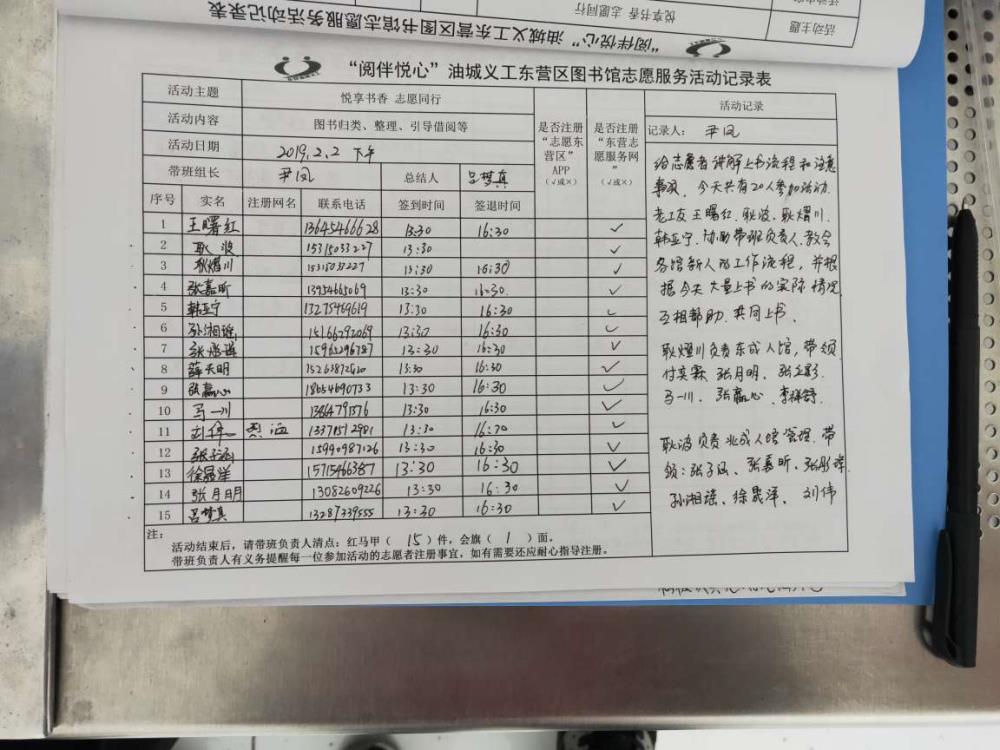 “阅伴悦心”油城义工东营区图书馆志愿服务活动记录表
悦享书香 志愿同行
活动主题
“阅伴悦心”油城义工东营区图书馆志愿服务活动记录表
活动主题 悦享书香 志愿同行
活动内容 图书归类、整理、引导借阅等
活动日期 2019.2.2 下午
带班组长 尹凤 总结人 吕梦真
是否注册“志愿东营区”APP(√或×)
是否注册“东营志愿服务网”(√或×)
序号 实名 注册网名 联系电话 签到时间 签退时间
1 王曙红 13645466628 13:30 16:30 ✓
2 耿波 15315033227 13:30 ✓
3 耿熠川 15315033227 13:30 16:30 ✓
4 张嘉昕 13954665069 13:30 16:30 ✓
5 韩亚宁 13275469619 13:30 16:30 ✓
6 孙湘瑶 15166292069 13:30 16:30 ✓
7 13:30 16:30 ✓
8 薛天明 13:30 16:30 ✓
9 张赢心 18654690733 13:30 16:30 ✓
10 马一川 13:30 16:30 ✓
11 刘伟 13371512901 13:30 16:30 ✓
12 张子涵 15990987126 13:30 16:30 ✓
13 徐晟洋 15715466387 13:30 16:30 ✓
14 张月明 13082609226 13:30 16:30 ✓
15 吕梦真 13287339555 13:30 16:30 ✓
注：
活动结束后，请带班负责人清点：红马甲（ 15 ）件，会旗（ 1 ）面。
带班负责人有义务提醒每一位参加活动的志愿者注册事宜，如有需要还应耐心指导注册。
活动记录
记录人： 尹凤
给志愿者讲解上书流程和注意
事项，今天共有20人参加活动.
老工友王曙红、耿波、耿熠川、
韩亚宁、协助带班负责人、教会
各馆新人的工作流程，并根
据今天大量上书的实际情况，
互相帮助、共同上书、
耿熠川负责东成人馆，带领
付奕霖 张月明、
马一川、张赢心、李祥
耿波负责北成人馆管理、带
领：张子涵、张嘉昕、张
孙湘瑶、徐晟洋、刘伟